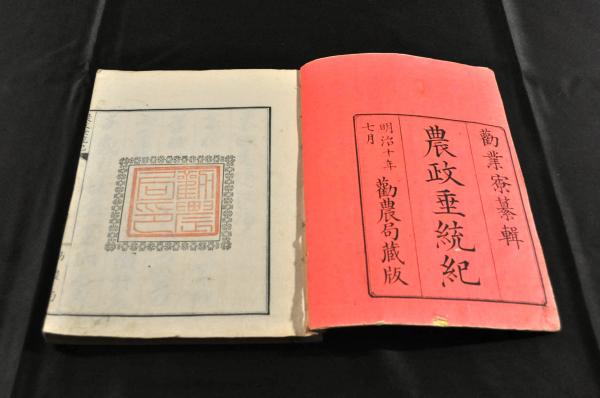 勸業寮纂輯
農政垂統紀
明治十年
七月
勸農局藏版
勸農
局印